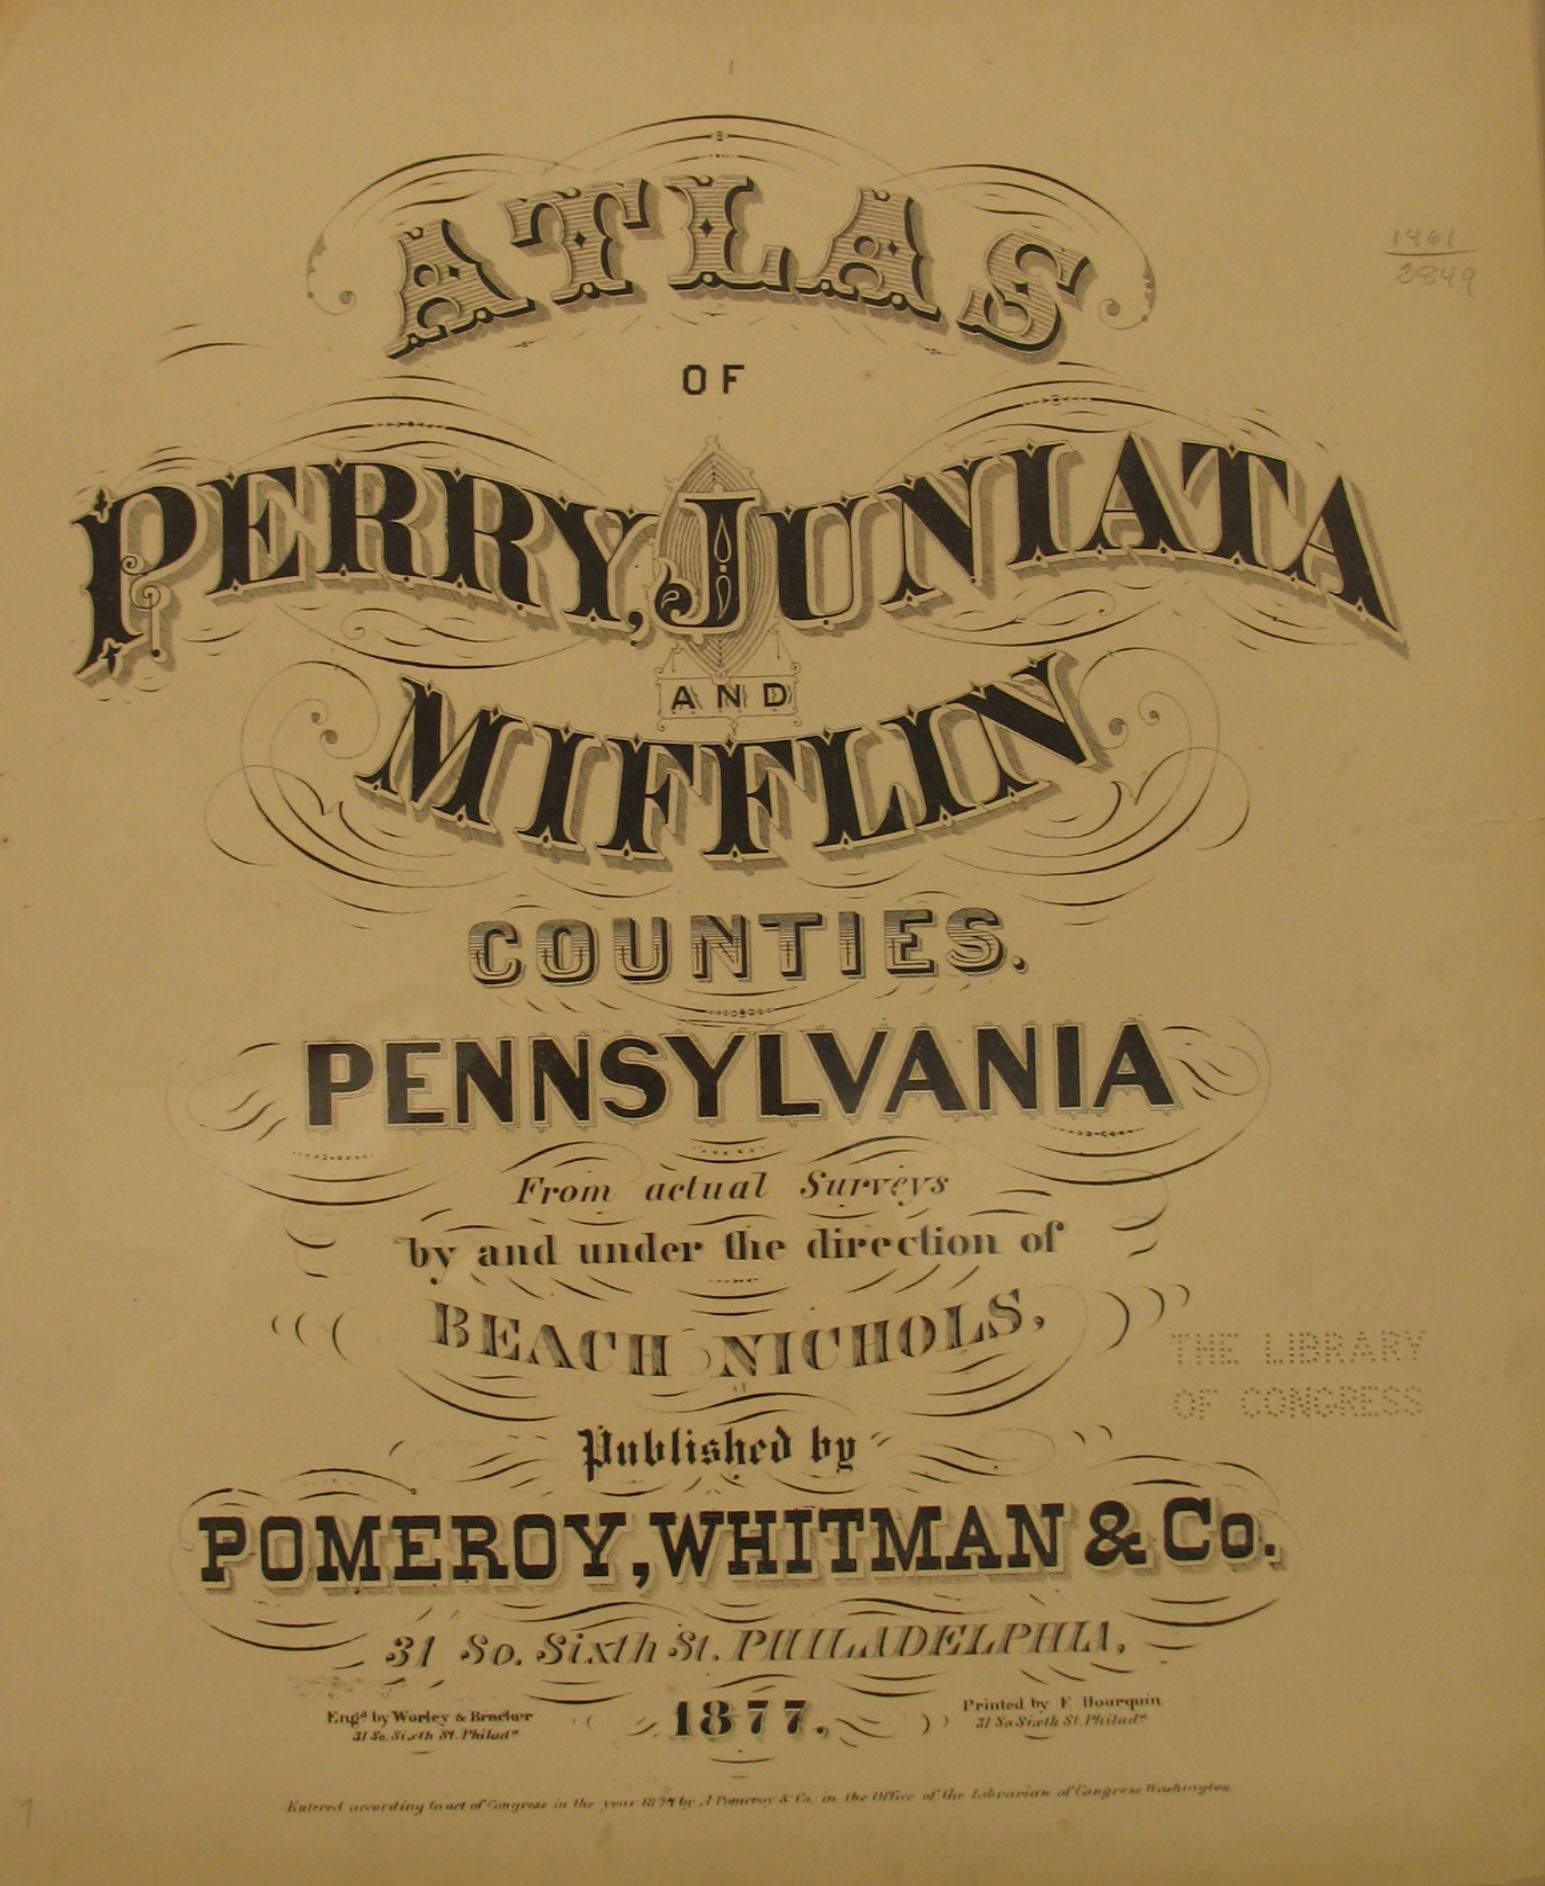 ATLAS
OF
PERRY, JUNIATA
AND
MIFFLIN
COUNTIES.
PENNSYLVANIA
From actual Surveys
by and under the direction of
BEACH NICHOLS,
THE LIBRARY
OF CONGRESS
Published by
POMEROY, WHITMAN & Co.
31 So. Sixth St. PHILADELPHIA,
1877.
Engd by Worley & Bracher
31 So. Sixth St. Philada
Printed by F Bourquin
31 So Sixth St. Philada
Entered according to act of Congress in the year 1877 by A Pomeroy & Co. in the Office of the Librarian of Congress Washington
1461
3849